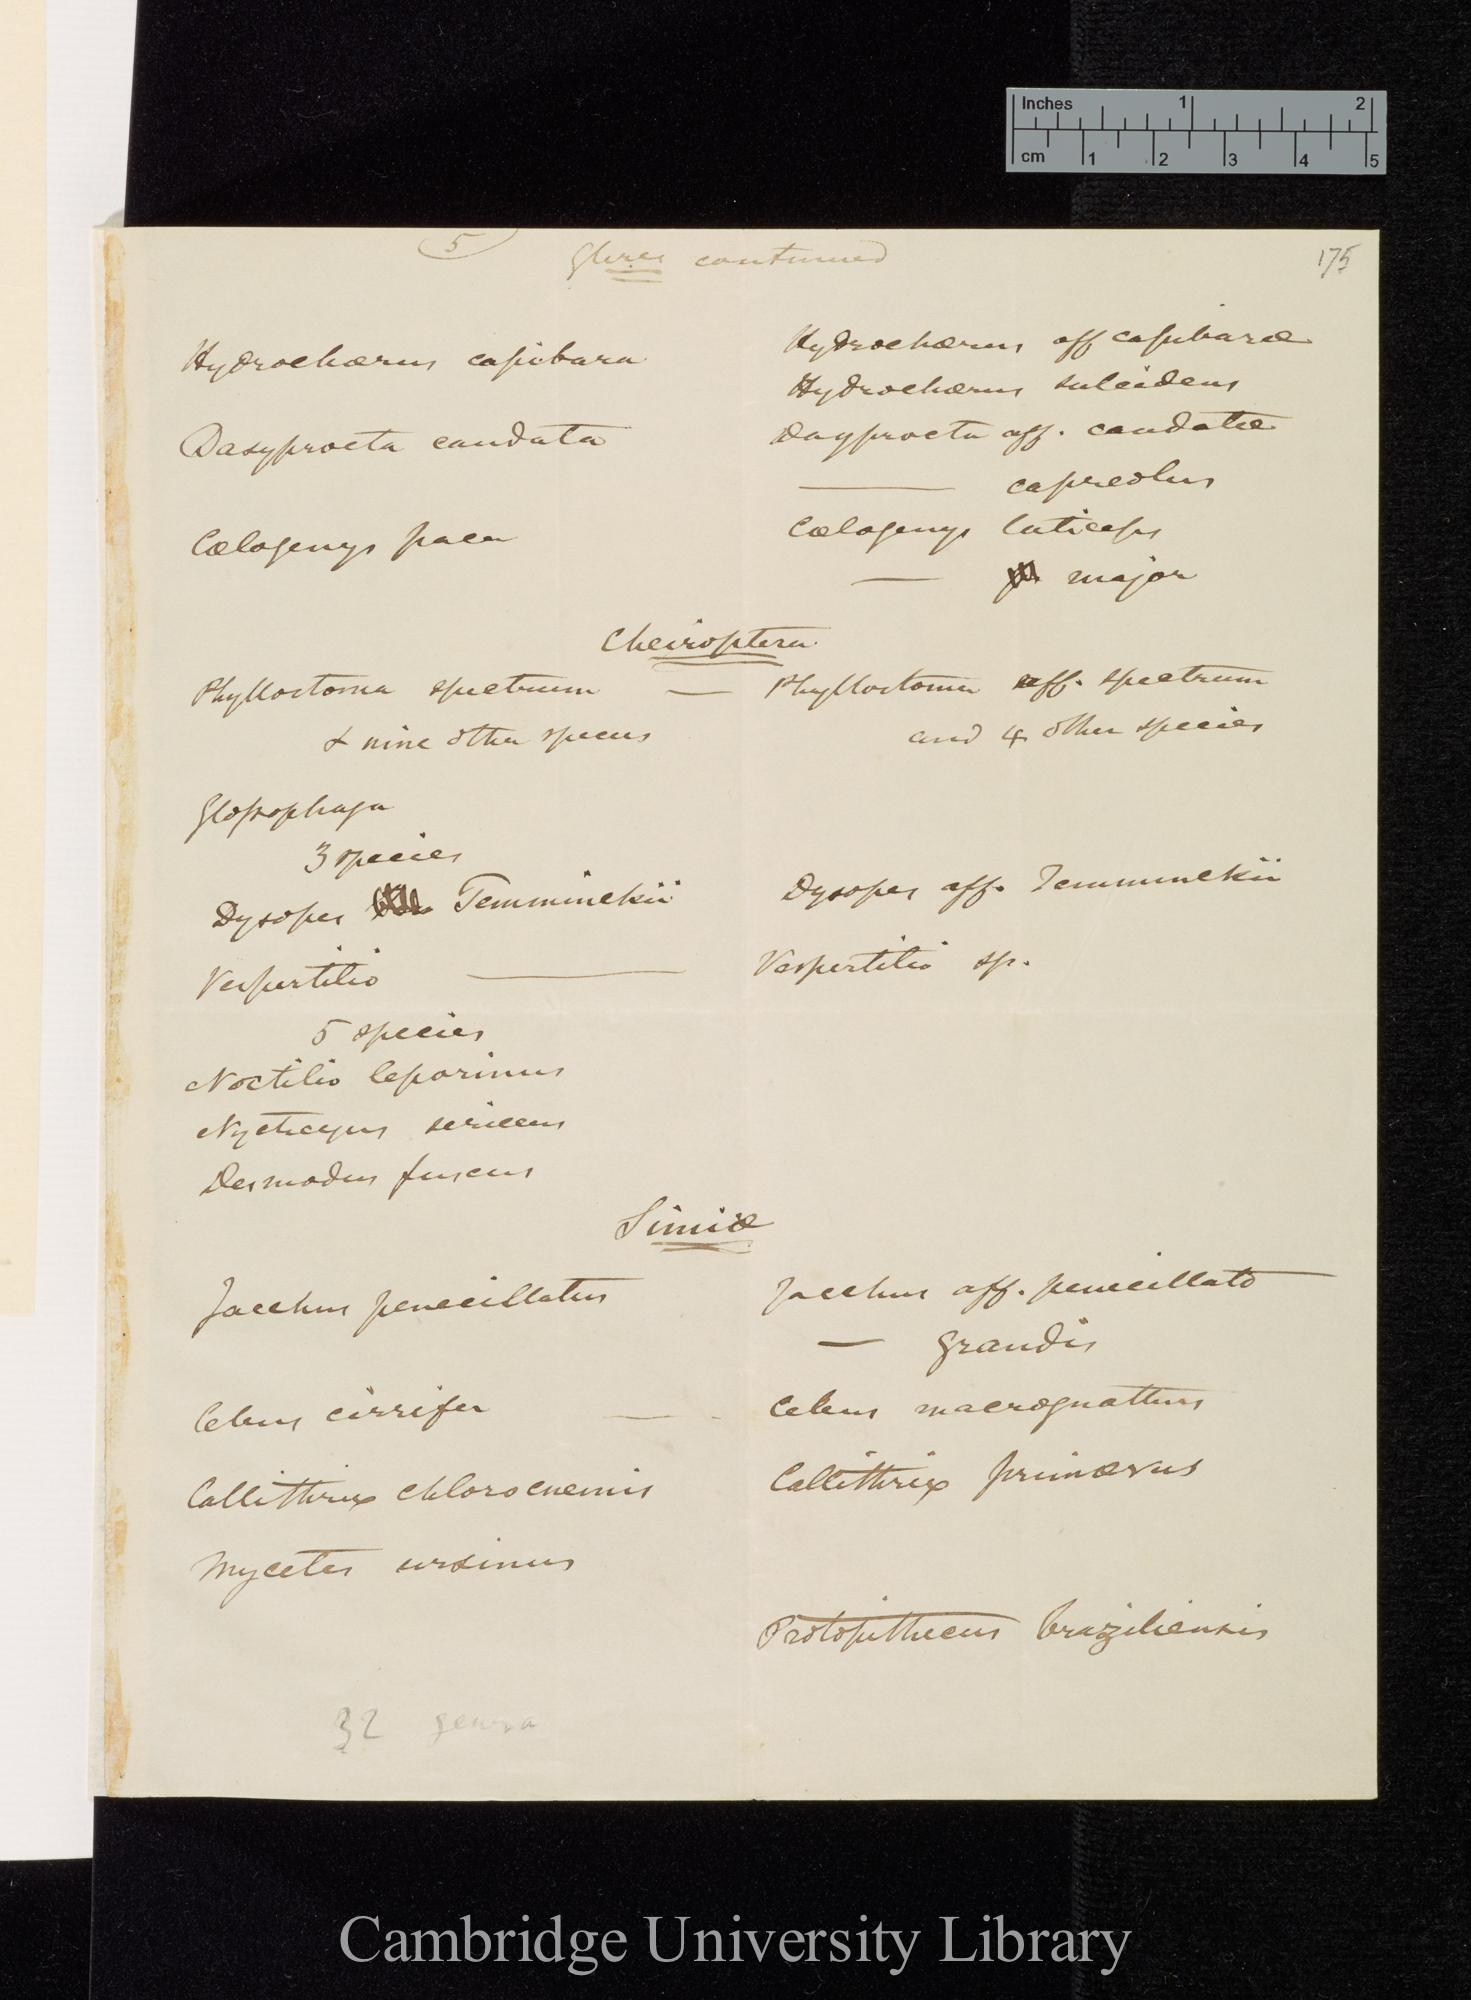 Inches 1 2
cm 1 2 3 4 5
5 Glires continued 175
Hydrochœrus capibara Hydrochœrus aff capibaræ
Hydrochœrus sulcidens
Dasyprocta caudata Dasyprocta aff. caudatæ
—— capreolus
Cœlogenys paca Cœlogenys laticeps
— major
Cheiroptera
Phyllostoma spectrum — Phyllostoma aff. spectrum
& nine other species and 4 other species
Glossophaga
3 species
Dysopes Temminckii Dysopes aff. Temminckii
Vespertilio —— Vespertilio sp.
5 species
Noctilio leporinus
Nycticejus sericeus
Desmodus fuscus
Simiæ
Jacchus penecillatus Jacchus aff. penicillato
— grandis
Cebus cirrifer — Cebus macrognathus
Callithrix chlorocnemis Callithrix primævus
Mycetes ursinus
Protopithecus braziliensis
32 genera
Cambridge University Library